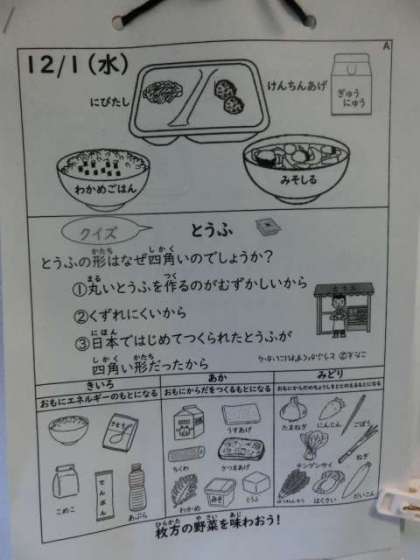 A
12/1(水)
にびたし
けんちんあげ
ぎゅう
にゅう
わかめごはん
みそしる
クイズ
とうふ
とうふの形はなぜ四角いのでしょうか?
かたち しかく
①丸いとうふを作るのがむずかしいから
まる つく
②くずれにくいから
③日本ではじめてつくられたとうふが
にほん
四角い形だったから
しかく かたち
とうふ
きいろ
あか
みどり
おもにエネルギーのもとになる
おもにからだをつくるもとになる
おもにからだのちょうしをととのえるもとになる
さとう
こめこ
でんぷん
あぶら
うすあげ
ちくわ
さつまあげ
わかめ
みそ
とうふ
たまねぎ
にんじん
ごぼう
チンゲンサイ
ねぎ
はくさい
だいこん
枚方の野菜を味わおう!
ひらかた やさい あじ